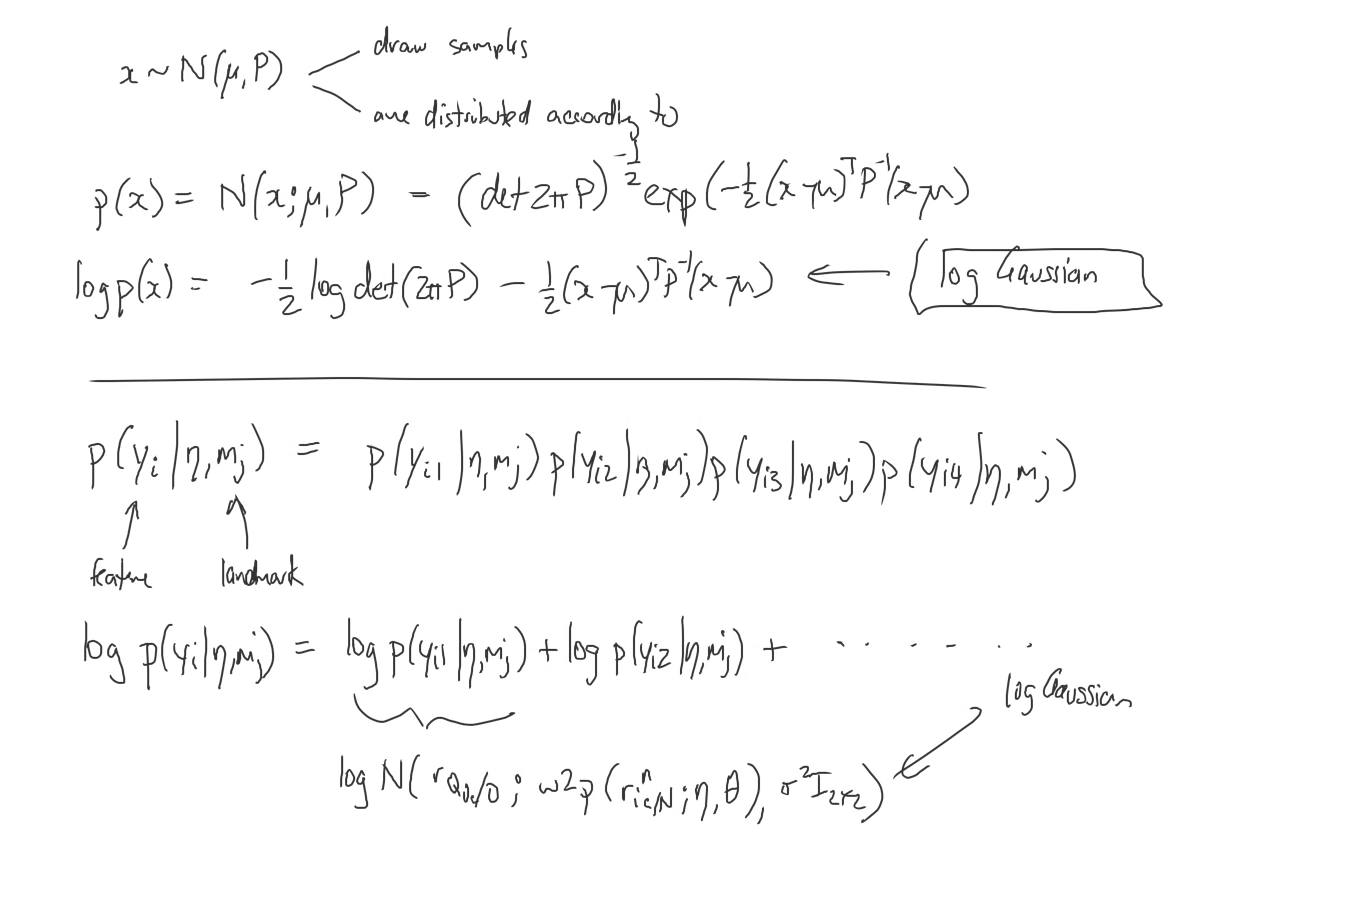 draw samples
x ~ N(μ, P)
are distributed according to
p(x) = N(x; μ, P) = (det 2π P)^{-1/2} exp(-1/2 (x-μ)^T P^{-1} (x-μ)
log p(x) = -1/2 log det(2π P) - 1/2 (x-μ)^T P^{-1} (x-μ) ← log Gaussian
p(y_i | η, m_j) = p(y_{i1} | η, m_j) p(y_{i2} | η, m_j) p(y_{i3} | η, m_j) p(y_{i4} | η, m_j)
feature landmark
log p(y_i | η, m_j) = log p(y_{i1} | η, m_j) + log p(y_{i2} | η, m_j) + . . . . . .
log Gaussian
log N( ; w2p( ; η, θ), σ² I_{2×2})